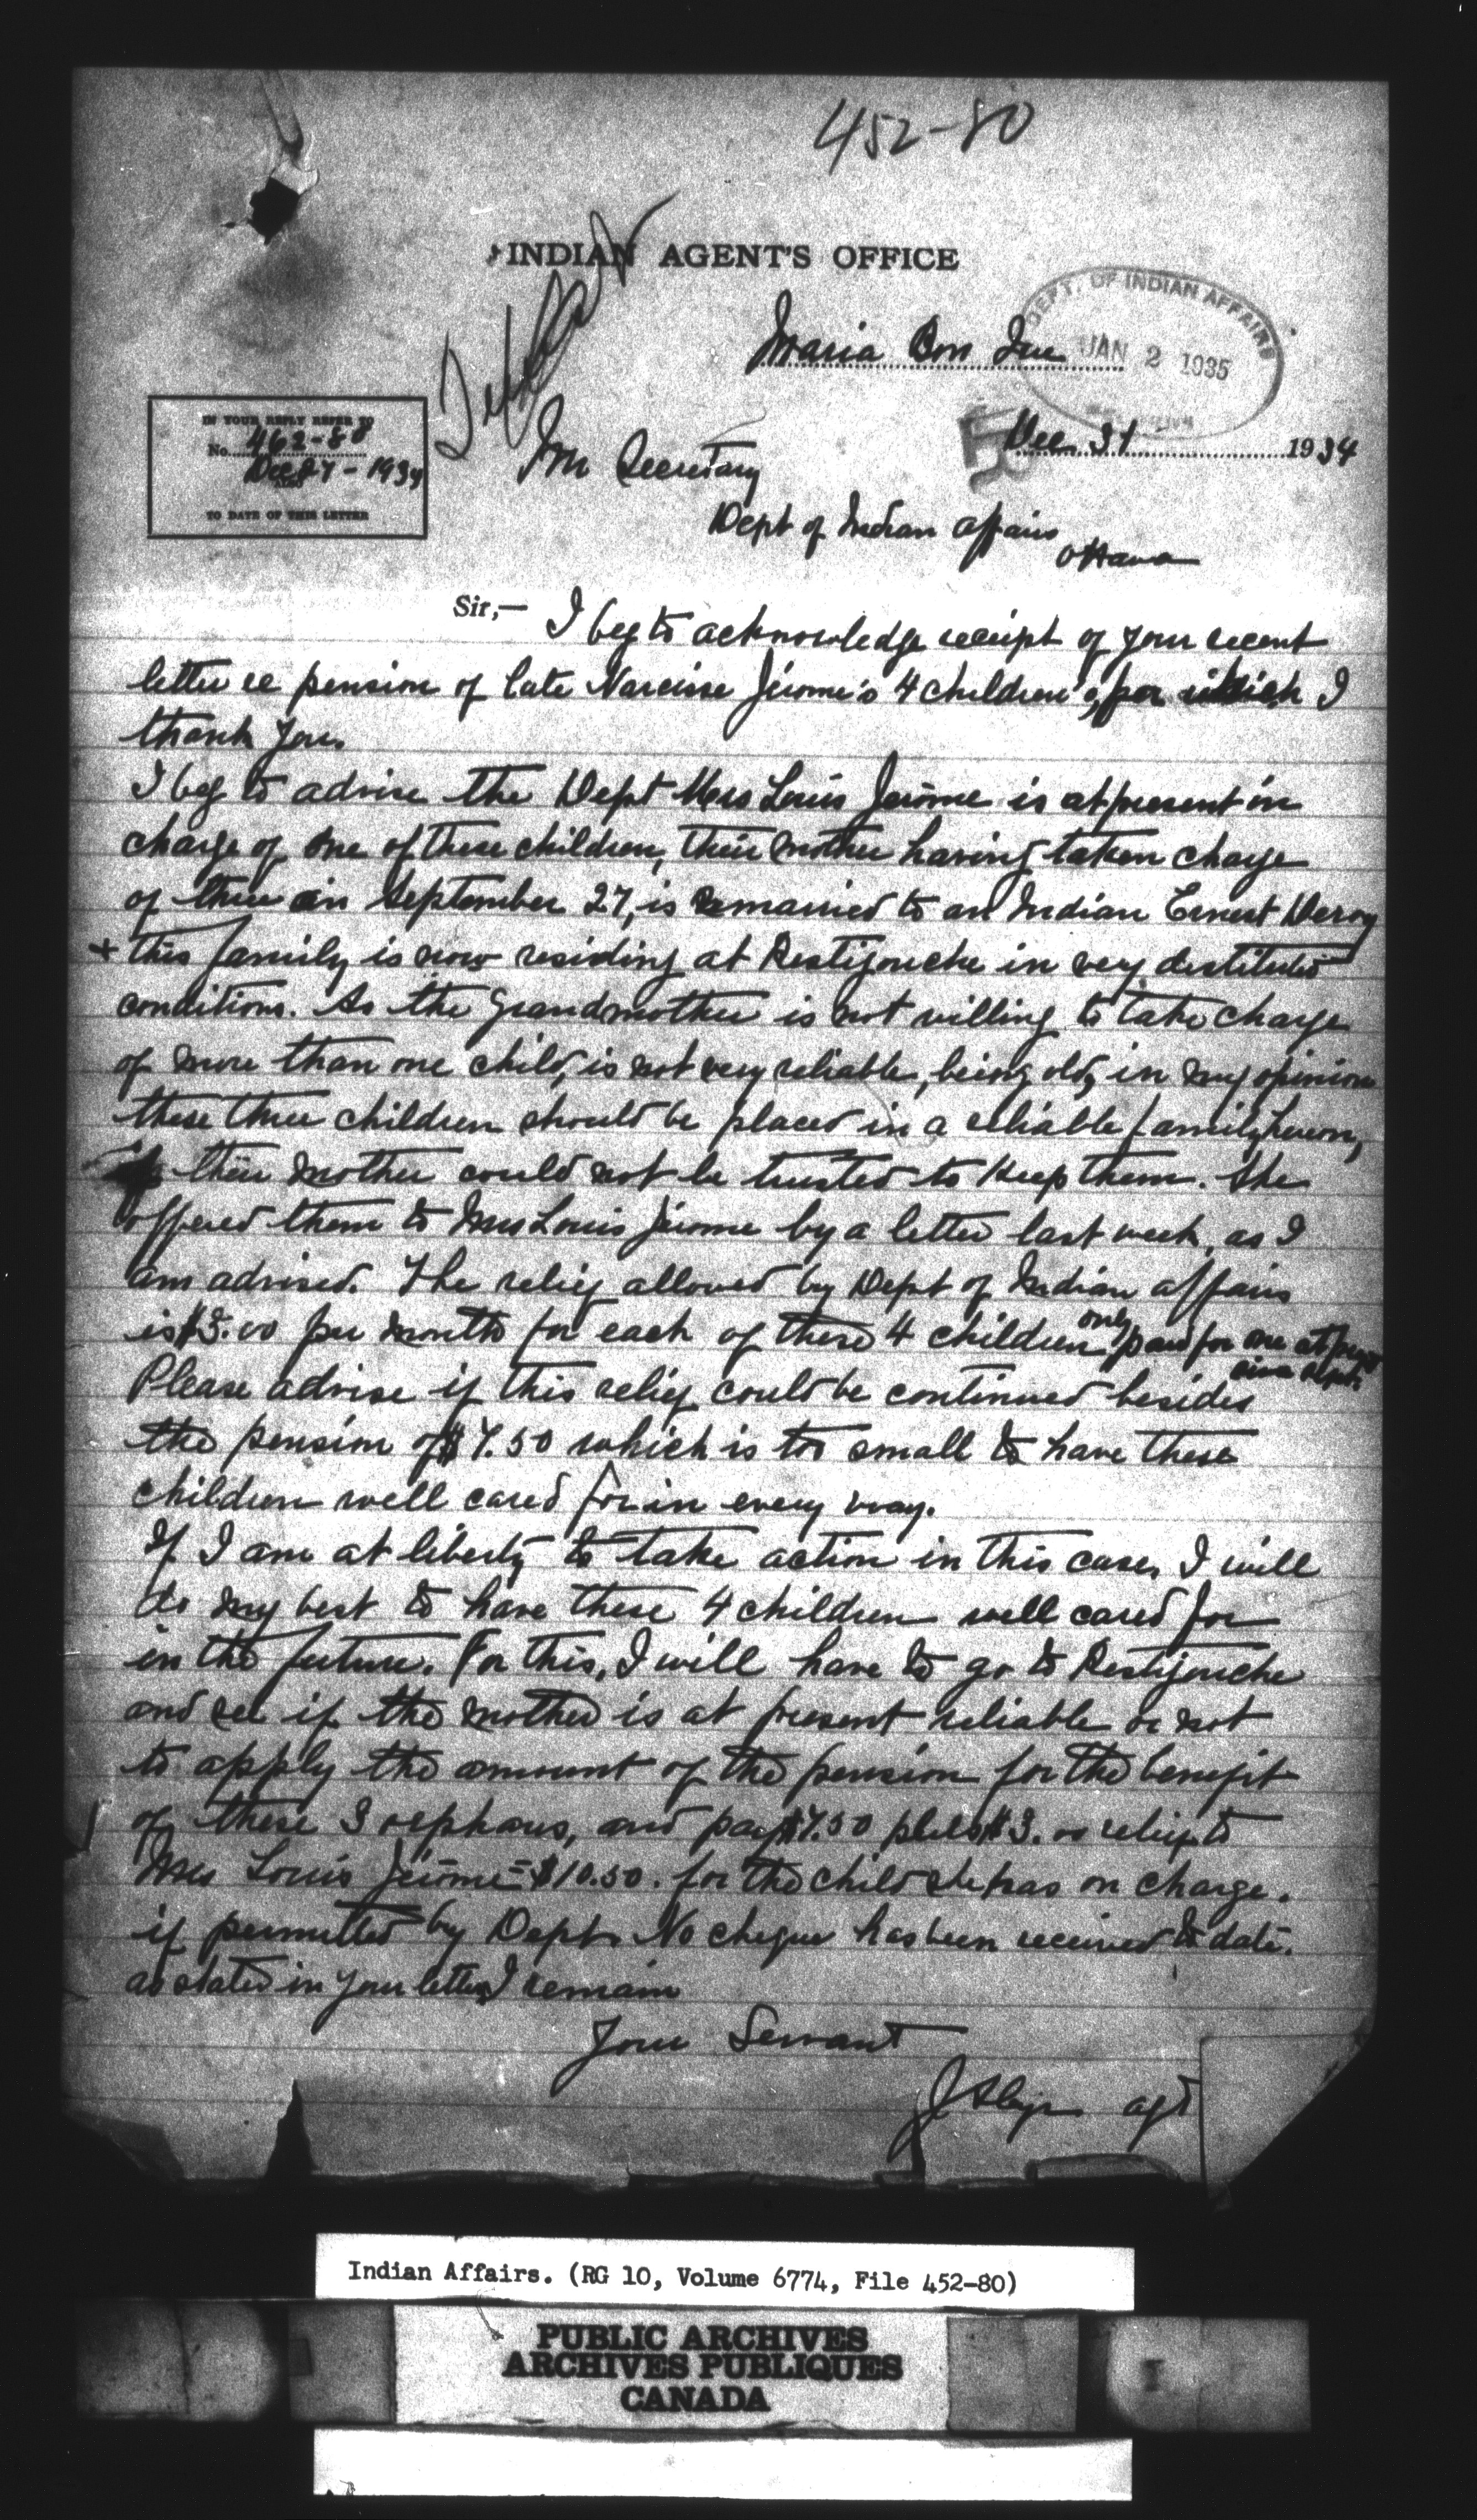 452-80
INDIAN AGENT'S OFFICE
Maria Bon Que
DEPT. OF INDIAN AFFAIRS
JAN 2 1935
IN YOUR REPLY REFER TO
No. 462-80
Dec 27 - 1934
TO DATE OF THIS LETTER
Dec 31 1934
Secretary
Dept of Indian affairs
Ottawa
Sir,— I beg to acknowledge receipt of your recent
letter re pension of late Narcisse Jérome's 4 children's, for which I
thank you.
I beg to advise the Dept Mrs Louis Jerome is at present in
charge of one of these children, their mother having taken charge
of three in September 27, is remarried to an Indian Ernest
+ this family is now residing at Restigouche in very destitute
conditions. As the Grandmother is not willing to take charge
of more than one child, is not very reliable, being old, in my opinion
these three children should be placed in a reliable family,
if their mother could not be trusted to keep them. She
offered them to Mrs Louis Jerome by a letter last week, as I
am advised. The relief allowed by Dept of Indian affairs
is $3.00 per month for each of these 4 children only paid for one at
since Sept.
Please advise if this relief could be continued besides
the pension of $7.50 which is too small to have these
children well cared for in every way.
If I am at liberty to take action in this case, I will
do my best to have these 4 children well cared for
in the future. For this, I will have to go to Restigouche
and see if the mother is at present reliable or not
to apply the amount of the pension for the benefit
of these 3 orphans, and pay $7.50 plus $3.00 relief to
Mrs Louis Jérome = $10.50. for the child she has on charge.
if permitted by Dept. No cheque has been received to date.
as stated in your letter, I remain
Your Servant
agt
Indian Affairs. (RG 10, Volume 6774, File 452-80)
PUBLIC ARCHIVES
ARCHIVES PUBLIQUES
CANADA